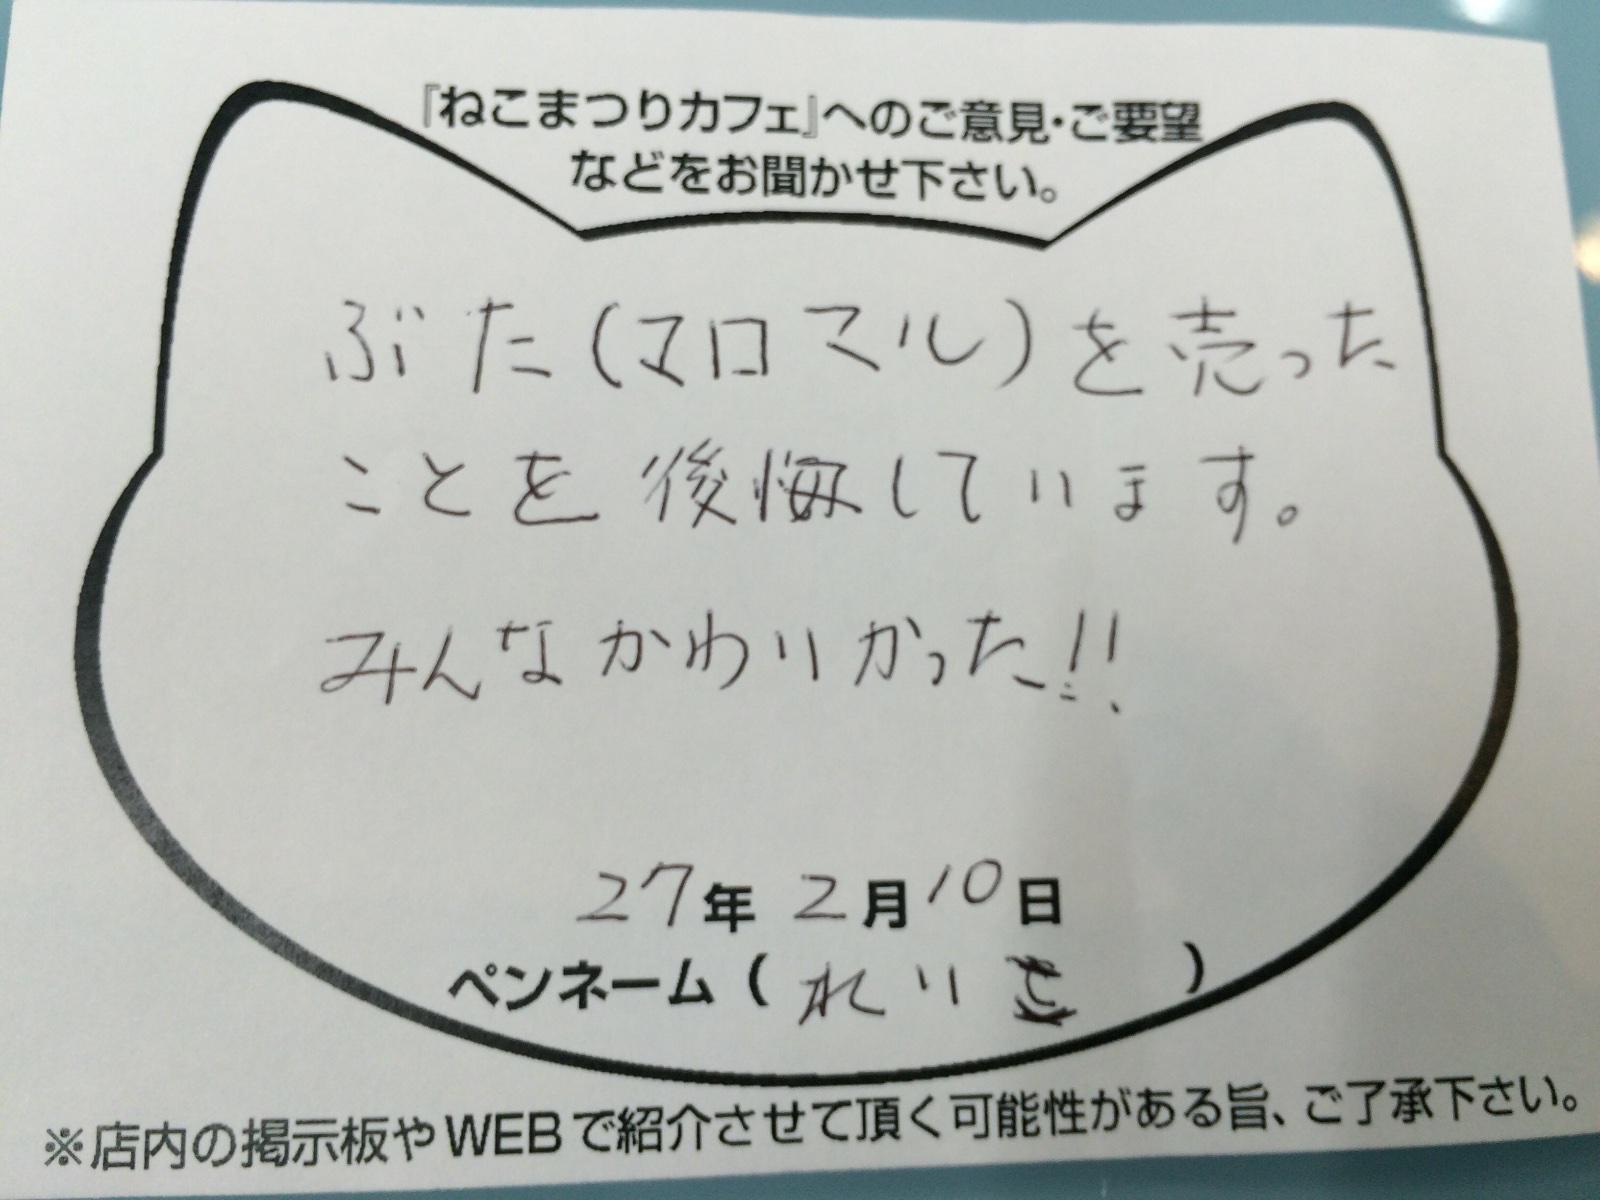 『ねこまつりカフェ』へのご意見・ご要望
などをお聞かせ下さい。
ぶた(マロマル)を売った
ことを後悔しています。
みんなかわりかった!!
27年 2月10日
ペンネーム( れいき )
※店内の掲示板やWEBで紹介させて頂く可能性がある旨、ご了承下さい。